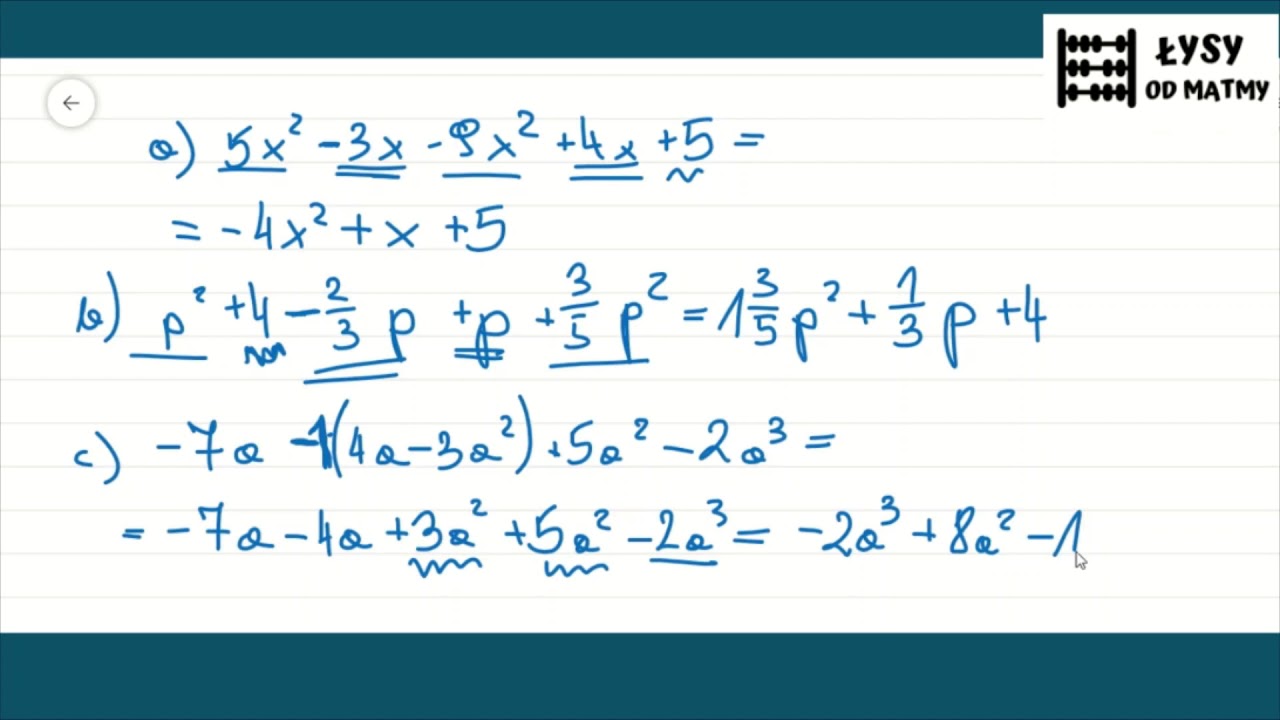 ŁYSY
OD MATMY
a) 5x² -3x -9x² +4x +5 =
= -4x² + x +5
b) p² +4 - 2/3 p +p + 3/5 p² = 1 3/5 p² + 1/3 p +4
c) -7a -1(4a-3a²) +5a² -2a³ =
= -7a -4a +3a² +5a² -2a³ = -2a³ +8a² -1